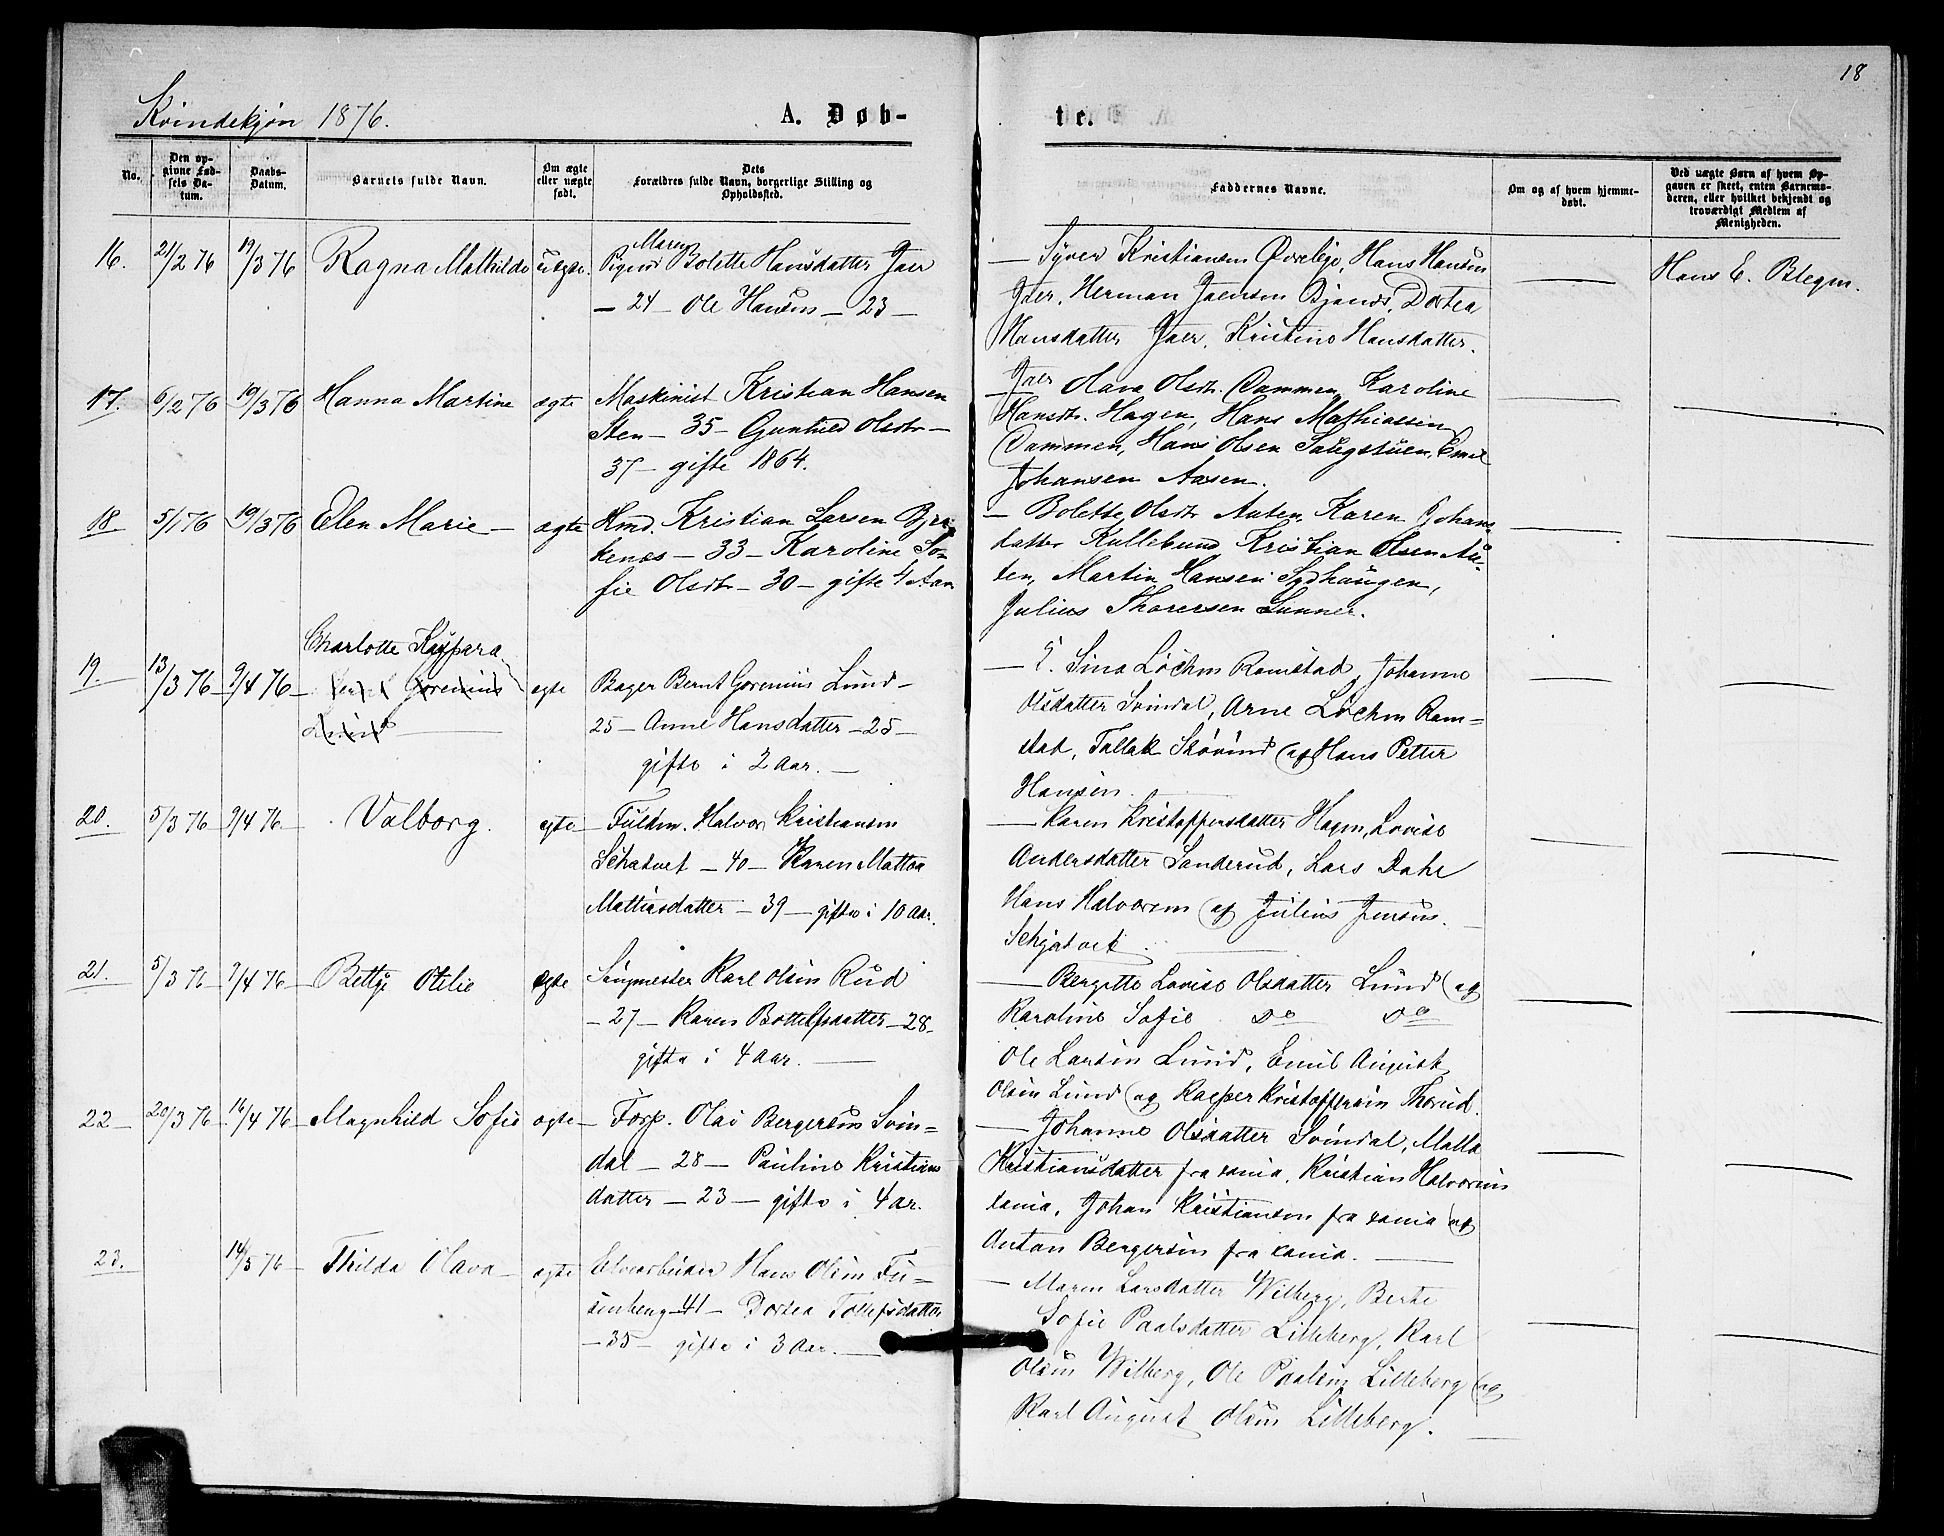 18
Kvindekjøn 1876.
A. Døb-
te.
No.
Den op-
givne Fød-
sels Da-
tum.
Daabs-
Datum.
Barnets fulde Navn.
Om ægte
eller uægte
født.
Dets
Forældres fulde Navn, borgerlige Stilling og
Opholdssted.
Faddernes Navne.
Om og af hvem hjemme-
døbt.
Ved uægte Børn af hvem Op-
gaven er skeet, enten Barnemo-
deren, eller hvilket bekjendt og
troværdigt Medlem af
Menigheden.
16. 21/2 76 19/3 76 Ragna Mathilde uægte
Maren
Pigen Bolette Hansdatter Jaer
— 24 — Ole Hansen — 23 —
— Syver Kristiansen Øvrelije, Hans Hansen
Jaer, Herman Jaensen Bjanes, Dortea
Hansdatter Jaer, Kristine Hansdatter
Jaer
Hans E. Blegen.
17. 6/2 76 19/3 76 Hanna Martine ægte
Maskinist Kristian Hansen
Sten — 35 — Gunhild Olsdtr —
37 — gifte 1864.
Olava Olsdtr. Dammen, Karoline
Hansdtr. Hagen, Hans Mathiassen
Dammen, Hans Olsen Saugstuen, Emil
Johansen Aasen.
18 5/1 76 19/3 76 Elen Marie — ægte
Hmd. Kristian Larsen Bjer-
kenes — 33 — Karoline So-
fie Olsdtr — 30 — gifte 4 Aar
— Bolette Olsdtr Auten, Karen Johans-
datter Kullebund, Kristian Olsen Au-
ten, Martin Hansen Sydhaugen,
Julius Thoresen Lunner.
19. 13/3 76 9/4 76 Charlotte Kaspara
Gorenius
Lund
egte
Bager Bernt Gorenius Lund —
25 — Anne Hansdatter — 25 —
gifte i 2 Aar. —
— E. Sina Løchen Ramstad, Johanne
Olsdatter Svindal, Arne Løchen Ram=
stad, Tallak Skøvind og Hans Petter
Hansen.
20. 5/3 76 9/4 76 Valborg. egte
Fuldm. Halvor Kristiansen
Schatvet — 40 — Karen Mattea
Mathiasdatter — 39 — gifte i 10 Aar.
— Karen Kristoffersdatter Hagen, Lovise
Andersdatter Sanderud, Lars Dahl
Hans Halvorsen og Julius Jensen
Schjatvet.
21. 5/3 76 9/4 76 Betty Otilie egte
Sagmester Karl Olsen Rud
— 27 — Karen Bottelfsdatter — 28 —
gifte i 4 Aar. —
— Bergitte Lovise Olsdatter Lund og
Karoline Sofie Do Do
Ole Larsen Lund, Emil August
Olsen Lund og Kasper Kristoffersen Thorud.
22 20/3 76 16/4 76 Magnhild Sofie ægte
Forp. Olai Bergersen Svin=
dal — 28 — Pauline Kristians
datter — 23 — gifte i 4 ar.
— Johanne Olsdatter Svindal, Malla
Kristiansdatter fra xania, Kristian Halvorsen
xania, Johan Kristiansen fra xania og
Anton Bergersen fra xania.
23. 14/5 76 Thilda Olava ægte
Elvearbeider Hans Olsen Fu=
senheng — 41 — Dortea Tollefsdatter
— 35 — gifte i 3 Aar. —
— Maren Larsdatter Wilberg, Berte
Sofie Paalsdatter Lilleberg, Karl
Olsen Wilberg, Ole Paalsen Lilleberg og
Karl August Olsen Lilleberg.